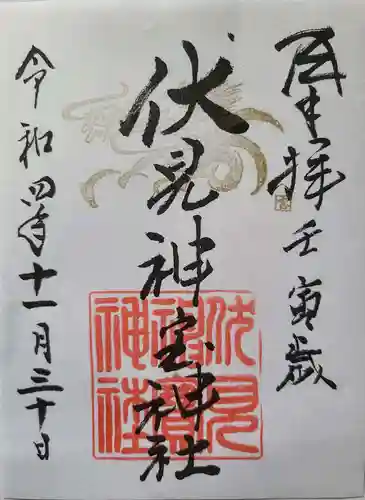 奉拝 壬寅歳
伏見神宝神社
伏見神寳神社
令和四年十一月三十日